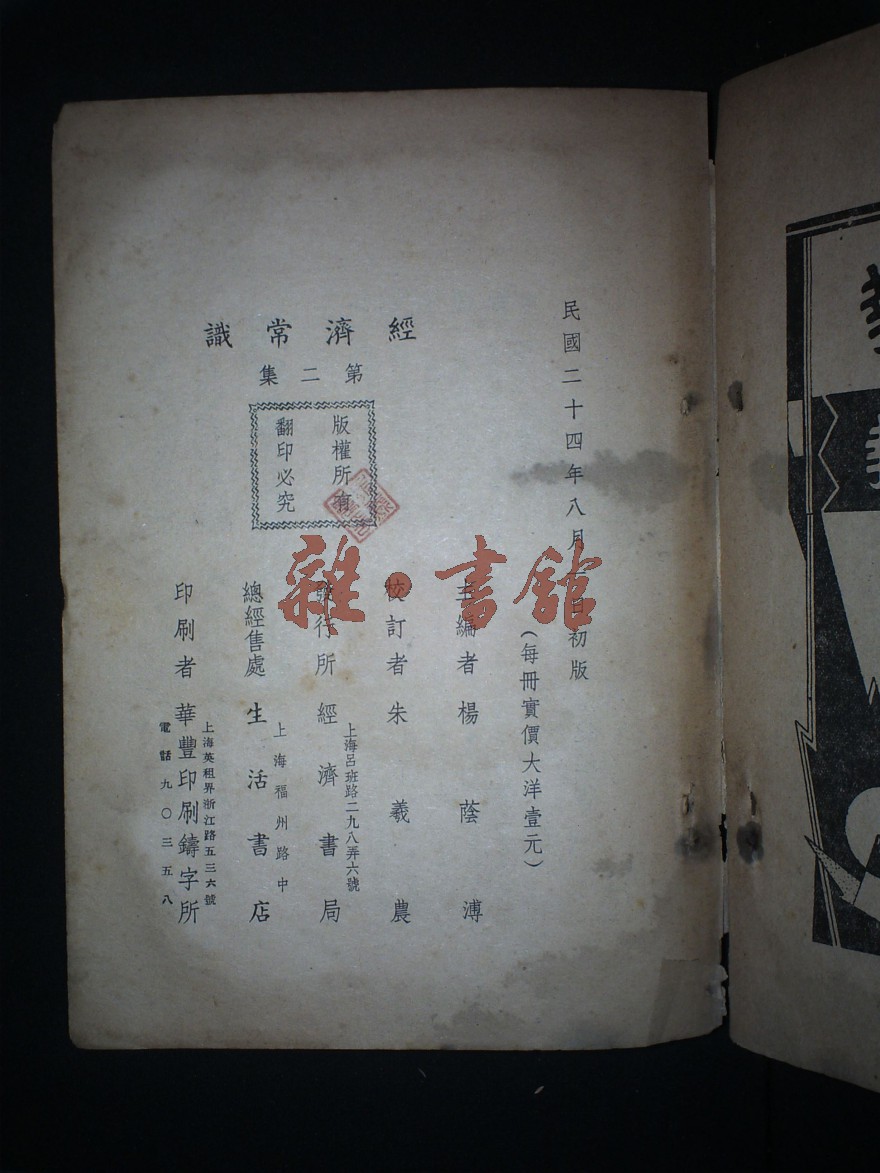 民國二十四年八月 日初版
(每冊實價大洋壹元)
經濟常識
第二集
版權所有
翻印必究
主編者 楊蔭溥
校訂者 朱羲農
上海呂班路二九八弄六號
發行所 經濟書局
上海福州路中
總經售處 生活書店
上海英租界浙江路五三六號
印刷者 華豐印刷鑄字所
電話九〇三五八
雜·書館